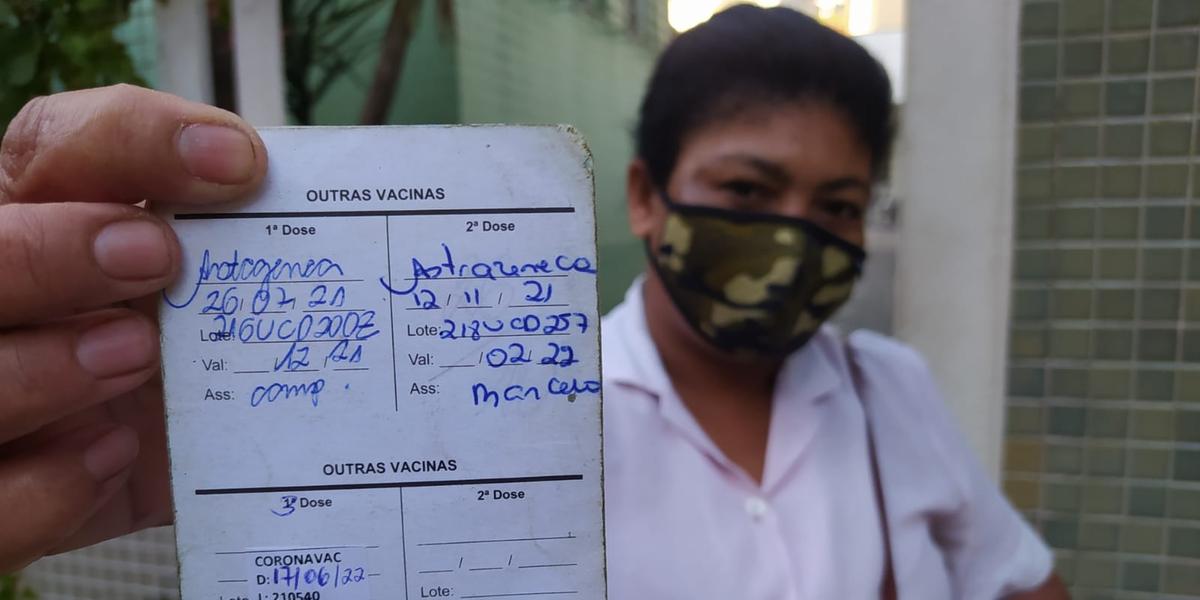 OUTRAS VACINAS
1ª Dose
2ª Dose
Astrazeneca
26/07/21
12/11/21
Lote: 216UCD200Z
Lote: 218UCD257
Val: 12/21
Val: /02/22
Ass: comp.
Ass: Marcelo
OUTRAS VACINAS
3ª Dose
2ª Dose
CORONAVAC
D: 17/06/22
/ /
L: 210540
Lote: